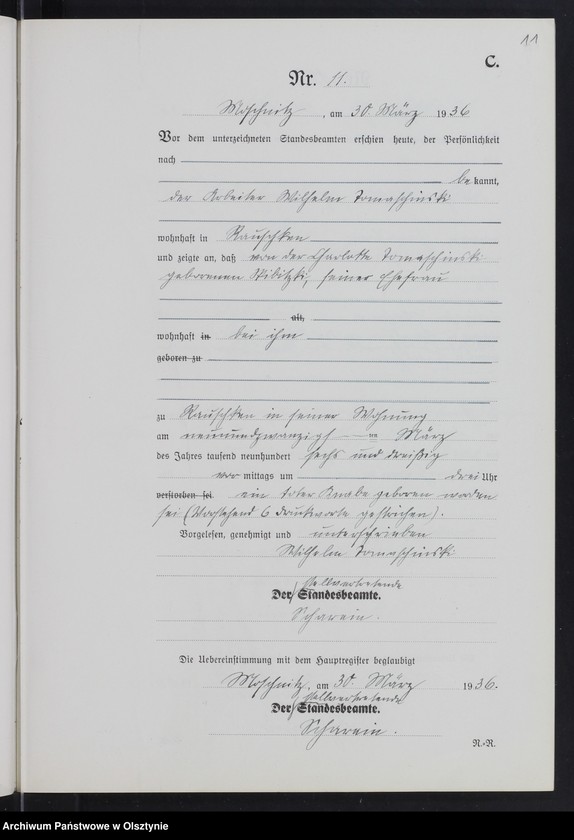 11
C.
Nr. 11.
Moschnitz, am 30. März 1936
Vor dem unterzeichneten Standesbeamten erschien heute, der Persönlichkeit
nach
bekannt,
der Arbeiter Wilhelm Tomaschinski
wohnhaft in Rauschken
und zeigte an, daß von der Charlotte Tomaschinski
geborenen Skibitzki, seiner Ehefrau
alt,
wohnhaft in bei ihm
geboren zu
zu Rauschken in seiner Wohnung
am neunundzwanzigsten März
des Jahres tausend neunhundert sechs und dreißig
vormittags um drei Uhr
verstorben sei. ein toter Knabe geboren worden
sei (Vorstehend 6 Druckworte gestrichen).
Vorgelesen, genehmigt und unterschrieben
Wilhelm Tomaschinski
stellvertretende
Der Standesbeamte.
Scharein.
Die Uebereinstimmung mit dem Hauptregister beglaubigt
Moschnitz, am 30. März 1936.
stellvertretende
Der Standesbeamte.
Scharein.
R.-R.
Archiwum Państwowe w Olsztynie